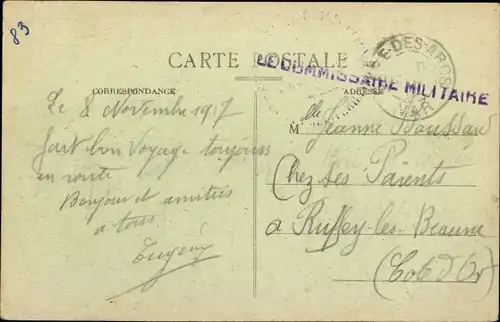 83
CARTE POSTALE
LE COMMISSAIRE MILITAIRE
E-DES-ARCS
VAR
CORRESPONDANCE
ADRESSE
Le 8 Novembre 1917
fait bon Voyage toujours
en route
Bonjour et amitiés
a tous
Eugény
M lle Jeanne Boussard
Chez Ses Parents
a Ruffey-les-Beaune
(Cote d'Or)